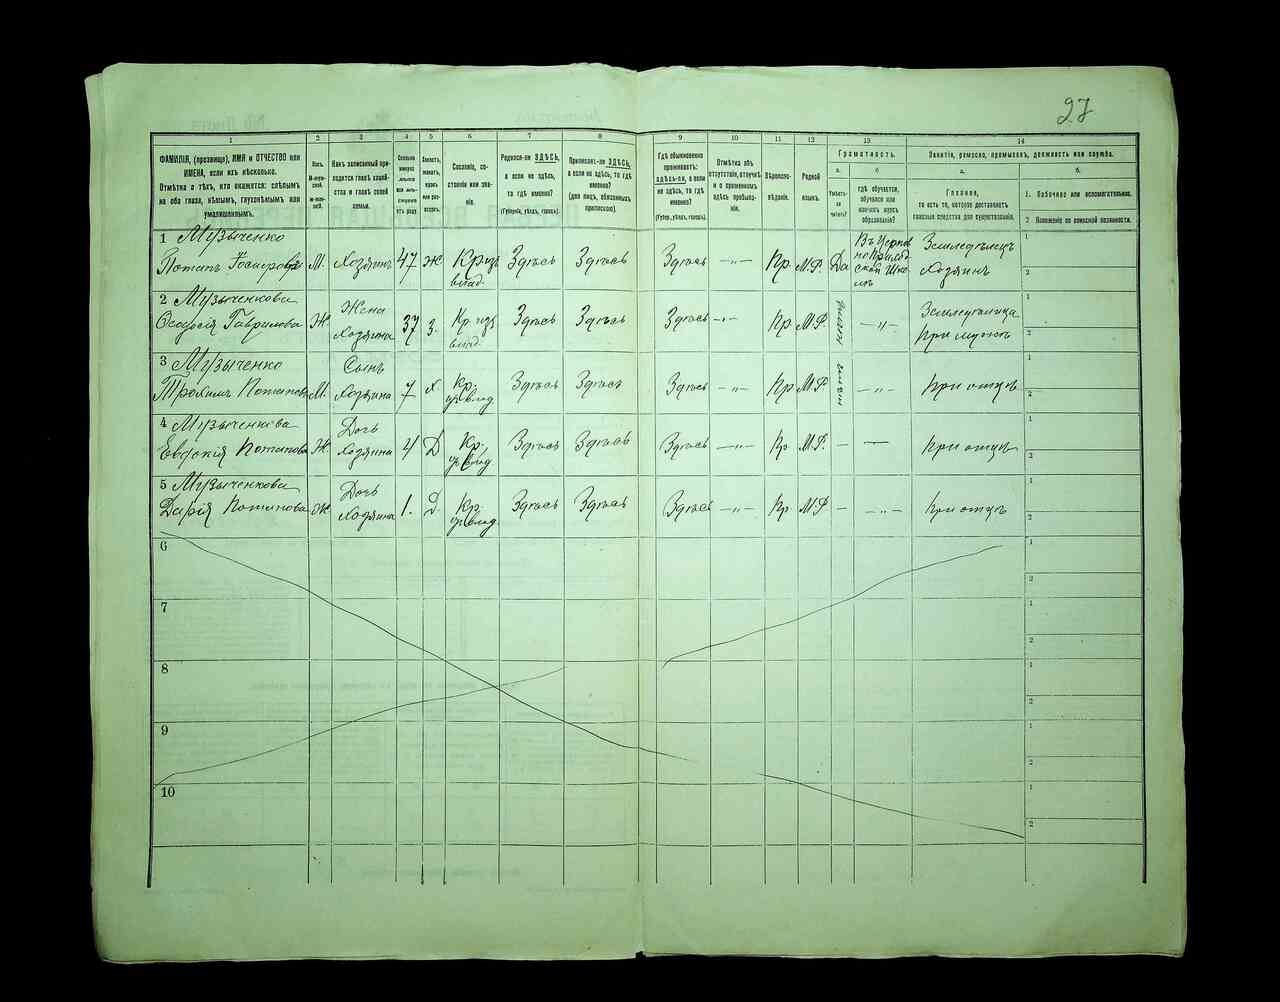 27
1 2 3 4 5 6 7 8 9 10 11 12 13 14
ФАМИЛІЯ, (прозвище), ИМЯ и ОТЧЕСТВО или
ИМЕНА, если ихъ нѣсколько.
Отмѣтка о тѣхъ, кто окажется: слѣпымъ
на оба глаза, нѣмымъ, глухонѣмымъ или
умалишеннымъ.
Полъ.
М-муж-
ской.
Ж-жен-
скій.
Какъ записанный при-
ходится главѣ хозяй-
ства и главѣ своей
семьи.
Сколько
минуло
лѣтъ
или мѣ-
сяцевъ
отъ роду
Холостъ,
женатъ,
вдовъ
или раз-
веденъ.
Сословіе, со-
стояніе или зва-
ніе.
Родился-ли ЗДѢСЬ,
а если не здѣсь,
то гдѣ именно?
(Губернія, уѣздъ, городъ).
Приписанъ-ли ЗДѢСЬ,
а если не здѣсь, то гдѣ
именно?
(для лицъ, обязанныхъ
припискою).
Гдѣ обыкновенно
проживаетъ:
здѣсь-ли, а если
не здѣсь, то гдѣ
именно?
(Губ., уѣздъ, городъ).
Отмѣтка объ
отсутствіи, отлучкѣ
и о временномъ
здѣсь пребыва-
ніи.
Вѣроиспо-
вѣданіе.
Родной
языкъ.
Грамотность.
а.
Умѣетъ-
ли
читать?
б.
гдѣ обучается,
обучался или
кончилъ курсъ
образованія?
Занятіе, ремесло, промыселъ, должность или служба.
а.
Главное,
то есть то, которое доставляетъ
главныя средства для существованія.
б.
1. Побочное или вспомогательное.
2 Положеніе по воинской повинности.
1 Музыченко
Потапъ М. Хозяинъ 47 ж Кр. изъ влад. Здѣсь Здѣсь Здѣсь —„— Пр М.Р. Да Земледѣлецъ
Хозяинъ
1
2
2 Музыченкова
Гаврилова Ж. Жена
Хозяина 37 З. Кр. изъ влад. Здѣсь Здѣсь Здѣсь —„— Пр М.Р. —„— Земледѣлица
При мужѣ
1
2
3 Музыченко
Трохимъ Потаповъ М. Сынъ
Хозяина 7 Х Кр. изъ влад Здѣсь Здѣсь Здѣсь —„— Пр М.Р —„— При отцѣ
1
2
4 Музыченкова
Евфокія Потапова Ж. Дочь
Хозяина 4 Д Кр. изъ влад Здѣсь Здѣсь Здѣсь —„— Пр М.Р. — — При отцѣ
1
2
5 Музыченкова
Дарія Потапова Ж. Дочь
Хозяина 1. Д. Кр. изъ влад Здѣсь Здѣсь Здѣсь —„— Пр М.Р — —„— При отцѣ
1
2
6
1
2
7
1
2
8
1
2
9
1
2
10
1
2